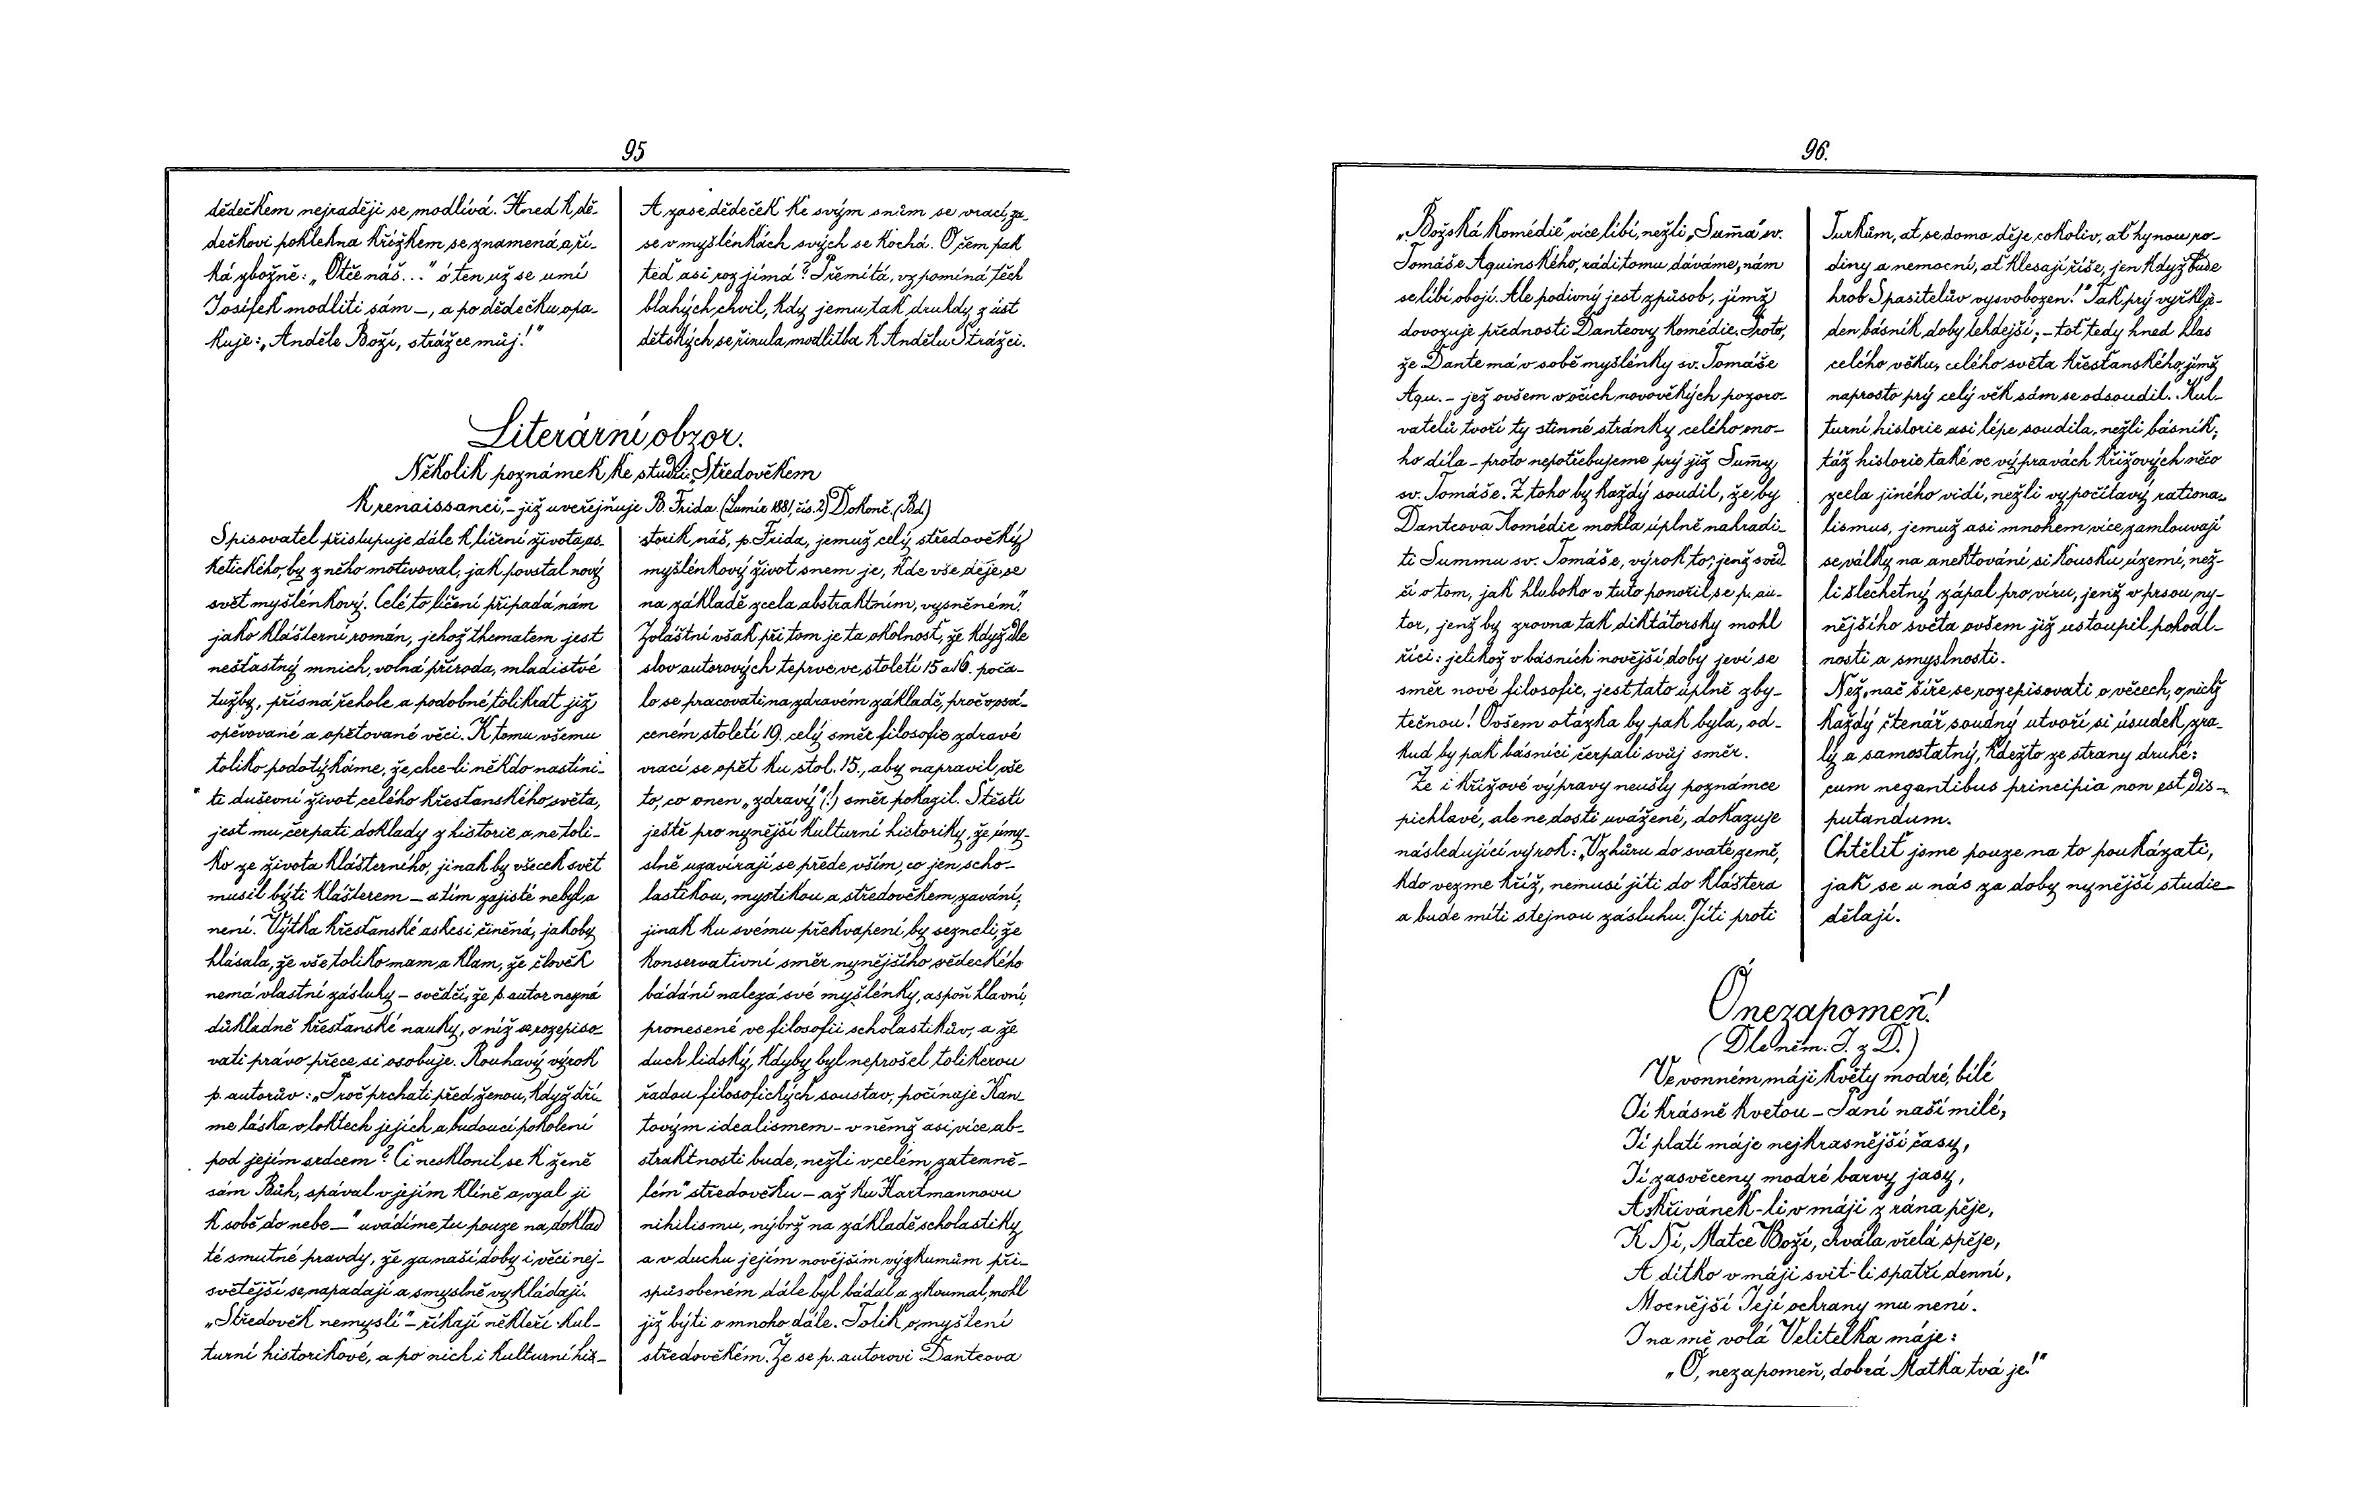 95
dědečkem nejraději se modlívá. Hned k dě-
dečkovi poklekna křížkem se znamená a ří-
ká zbožně: „Otče náš..." ó ten už se umí
Josífek modliti sám –, a po dědečku opa-
kuje: „Anděle Boží, strážce můj!"
A zase dědeček ke svým snům se vrací, za-
se v myšlénkách svých se kochá. O čem pak
teď asi rozjímá? Přemítá, vzpomíná těch
blahých chvil, kdy jemu tak druhdy z úst
dětských se řinula modlitba k Andělu Strážci.
Literární obzor.
Několik poznámek ke studii: „Středověkem
k renaissanci", – již uveřejňuje B. Frida (Lumír 1881, čís. 2) Dokonč. (Bd.)
Spisovatel přistupuje dále k líčení života as-
ketického, by z něho motivoval, jak povstal nový
svět myšlénkový. Celé to líčení připadá nám
jako klášterní román, jehož thematem jest
nešťastný mnich, volná příroda, mladistvé
tužby, přísná řehole a podobné tolikrát již
opěvované a opětované věci. K tomu všemu
toliko podotýkáme, že chce-li někdo nastíni-
ti duševní život celého křesťanského světa,
jest mu čerpati doklady z historie a ne toli-
ko ze života klášterního, jinak by všecek svět
musil býti klášterem – a tím zajisté nebyl a
není. Výtka křesťanské askesi činěná, jakoby
hlásala, že vše toliko mam a klam, že člověk
nemá vlastní zásluhy – svědčí, že p. autor nezná
důkladně křesťanské nauky, o níž se rozepiso-
vati právo přece si osobuje. Rouhavý výrok
p. autorův: „Proč prchati před ženou, když dří-
me láska v loktech jejích a budoucí pokolení
pod jejím srdcem? Či nesklonil se k ženě
sám Bůh, spával v jejím klíně a vzal ji
k sobě do nebe –" uvádíme tu pouze na doklad
té smutné pravdy, že za naší doby i věci nej-
světější se napadají a smyslně vykládají.
„Středověk nemyslí" – říkají někteří kul-
turní historikové, a po nich i kulturní his-
storik náš, p. Frida, jemuž celý středověký
myšlénkový život snem je, „kde vše děje se
na základě zcela abstraktním, vysněném".
Zvláštní však při tom je ta okolnost, že když dle
slov autorových teprve ve století 15 a 16. poča-
lo se pracovati na zdravém základě, proč v osví-
ceném století 19. celý směr filosofie zdravé
vrací se opět ku stol. 15., aby napravil vše
to, co onen „zdravý" (!) směr pokazil. Štěstí
ještě pro nynější kulturní historiky, že úmy-
slně uzavírají se přede vším, co jen scho-
lastikou, mystikou a středověkem zavání,
jinak ku svému překvapení by seznali, že
konservativní směr nynějšího vědeckého
bádání nalezá své myšlénky, aspoň hlavní,
pronesené ve filosofii scholastikův, a že
duch lidský, kdyby byl neprošel tolikerou
řadou filosofických soustav, počínaje Kan-
tovým idealismem – v němž asi více ab-
straktnosti bude, nežli v celém „zatemně-
lém" středověku – až ku Hartmannovu
nihilismu, nýbrž na základě scholastiky
a v duchu jejím novějším výzkumům při-
spůsobeném dále byl bádal a zkoumal, mohl
již býti o mnoho dále. Tolik o myšlení
středověkém. Že se p. autorovi Danteova
96.
„Božská Komédie" více líbí, nežli „Sum̄a" sv.
Tomáše Aquinského, rádi tomu dáváme, nám
se líbí obojí. Ale podivný jest způsob, jímž
dovozuje přednosti Danteovy Komédie. Proto,
že Dante má v sobě myšlénky sv. Tomáše
Aqu. – jež ovšem v očích novověkých pozoro-
vatelů tvoří ty stinné stránky celého ono-
ho díla – proto nepotřebujeme prý již Sum̄y
sv. Tomáše. Z toho by každý soudil, že by
Danteova Komédie mohla úplně nahradi-
ti Summu sv. Tomáše, výrok to, jenž svěd-
čí o tom, jak hluboko v tuto ponořil se p. au-
tor, jenž by zrovna tak diktátorsky mohl
říci: jelikož v básních novější doby jeví se
směr nové filosofie, jest tato úplně zby-
tečnou! Ovšem otázka by pak byla, od-
kud by pak básníci čerpali svůj směr.
Že i křížové výpravy neušly poznámce
pichlavé, ale ne dosti uvážené, dokazuje
následující výrok: „Vzhůru do svaté země,
kdo vezme kříž, nemusí jíti do kláštera
a bude míti stejnou zásluhu. Jíti proti
Turkům, ať se doma děje cokoliv, ať hynou ro-
diny a nemocní, ať klesají říše, jen když bude
hrob Spasitelův vysvobozen!" Tak prý vyřkl je-
den básník doby tehdejší; – toť tedy hned hlas
celého věku, celého světa křesťanského, jímž
naprosto prý celý věk sám se odsoudil. Kul-
turní historie asi lépe soudila, nežli básník;
táž historie také ve výpravách křížových něco
zcela jiného vidí, nežli vypočítavý rationa-
lismus, jemuž asi mnohem více zamlouvají
se války na anektování si kousku území, než-
li šlechetný zápal pro víru, jenž v prsou ny-
nějšího světa ovšem již ustoupil pohodl-
nosti a smyslnosti.
Než, nač šíře se rozepisovati o věcech, o nichž
každý čtenář soudný utvoří si úsudek zra-
lý a samostatný, kdežto ze strany druhé:
cum negantibus principia non est dis-
putandum.
Chtěliť jsme pouze na to poukázati,
jak se u nás za doby nynější studie
dělají.
Ó nezapomeň!
(Dle něm. J. z D.)
Ve vonném máji květy modré, bílé
Jí krásně kvetou – Paní naší milé,
Jí platí máje nejkrasnější časy,
Jí zasvěceny modré barvy jasy,
A skřivánek-li v máji z rána pěje,
K Ní, Matce Boží, chvála vřelá spěje,
A dítko v máji svit-li spatří denní,
Mocnější Její ochrany mu není.
I na mě volá Velitelka máje:
„Ó, nezapomeň, dobrá Matka tvá je!"